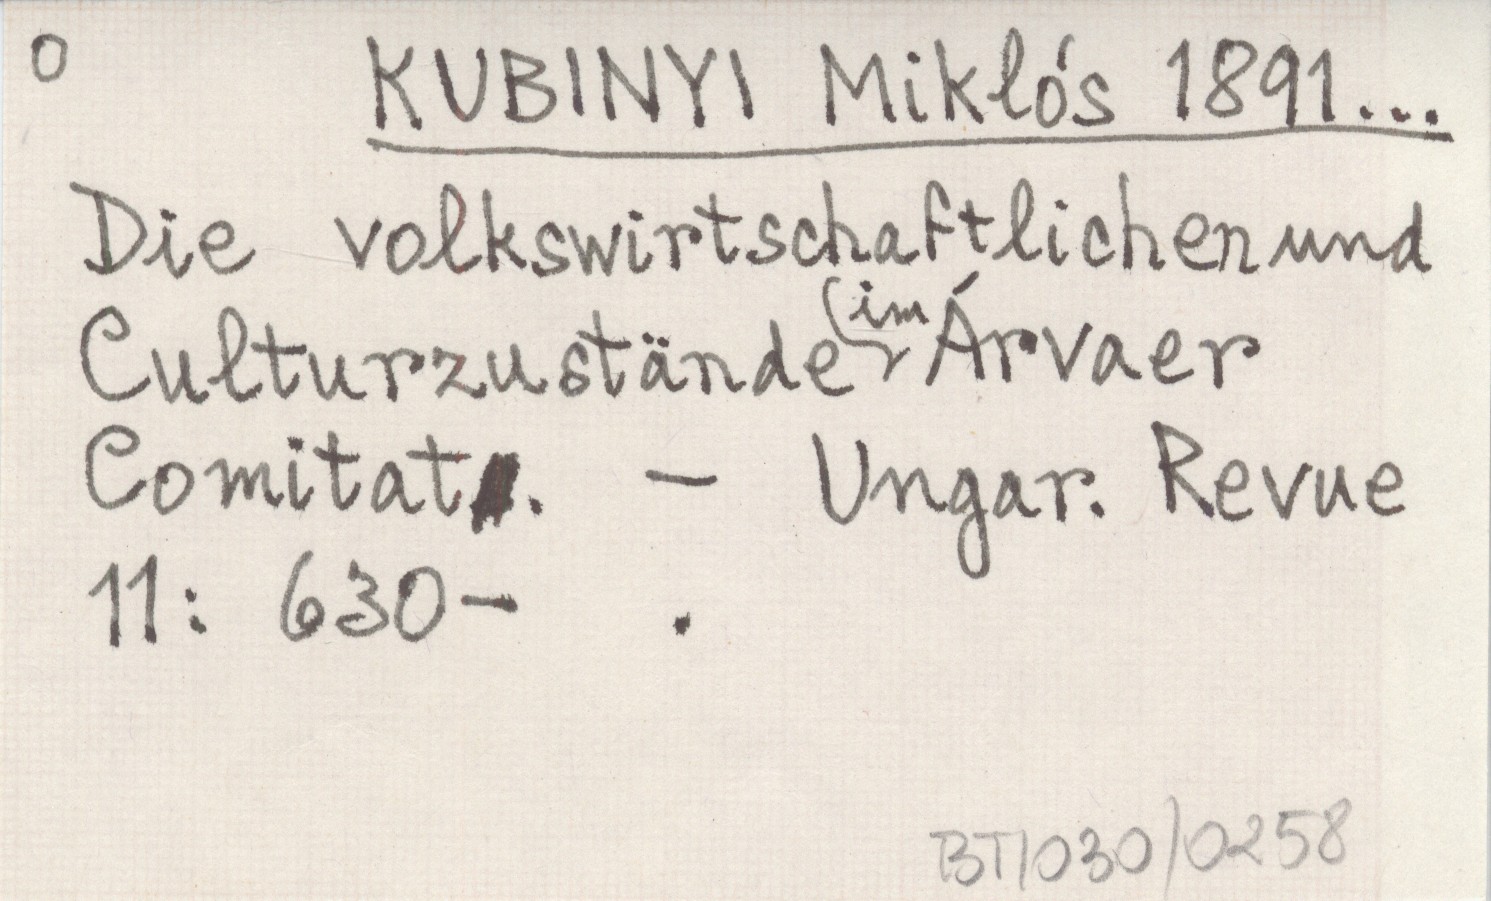 o KUBINYI Miklós 1891...
Die volkswirtschaftlichen und
Culturzustände im Árvaer
Comitat. - Ungar. Revue
11: 630- .
BT/030/0258